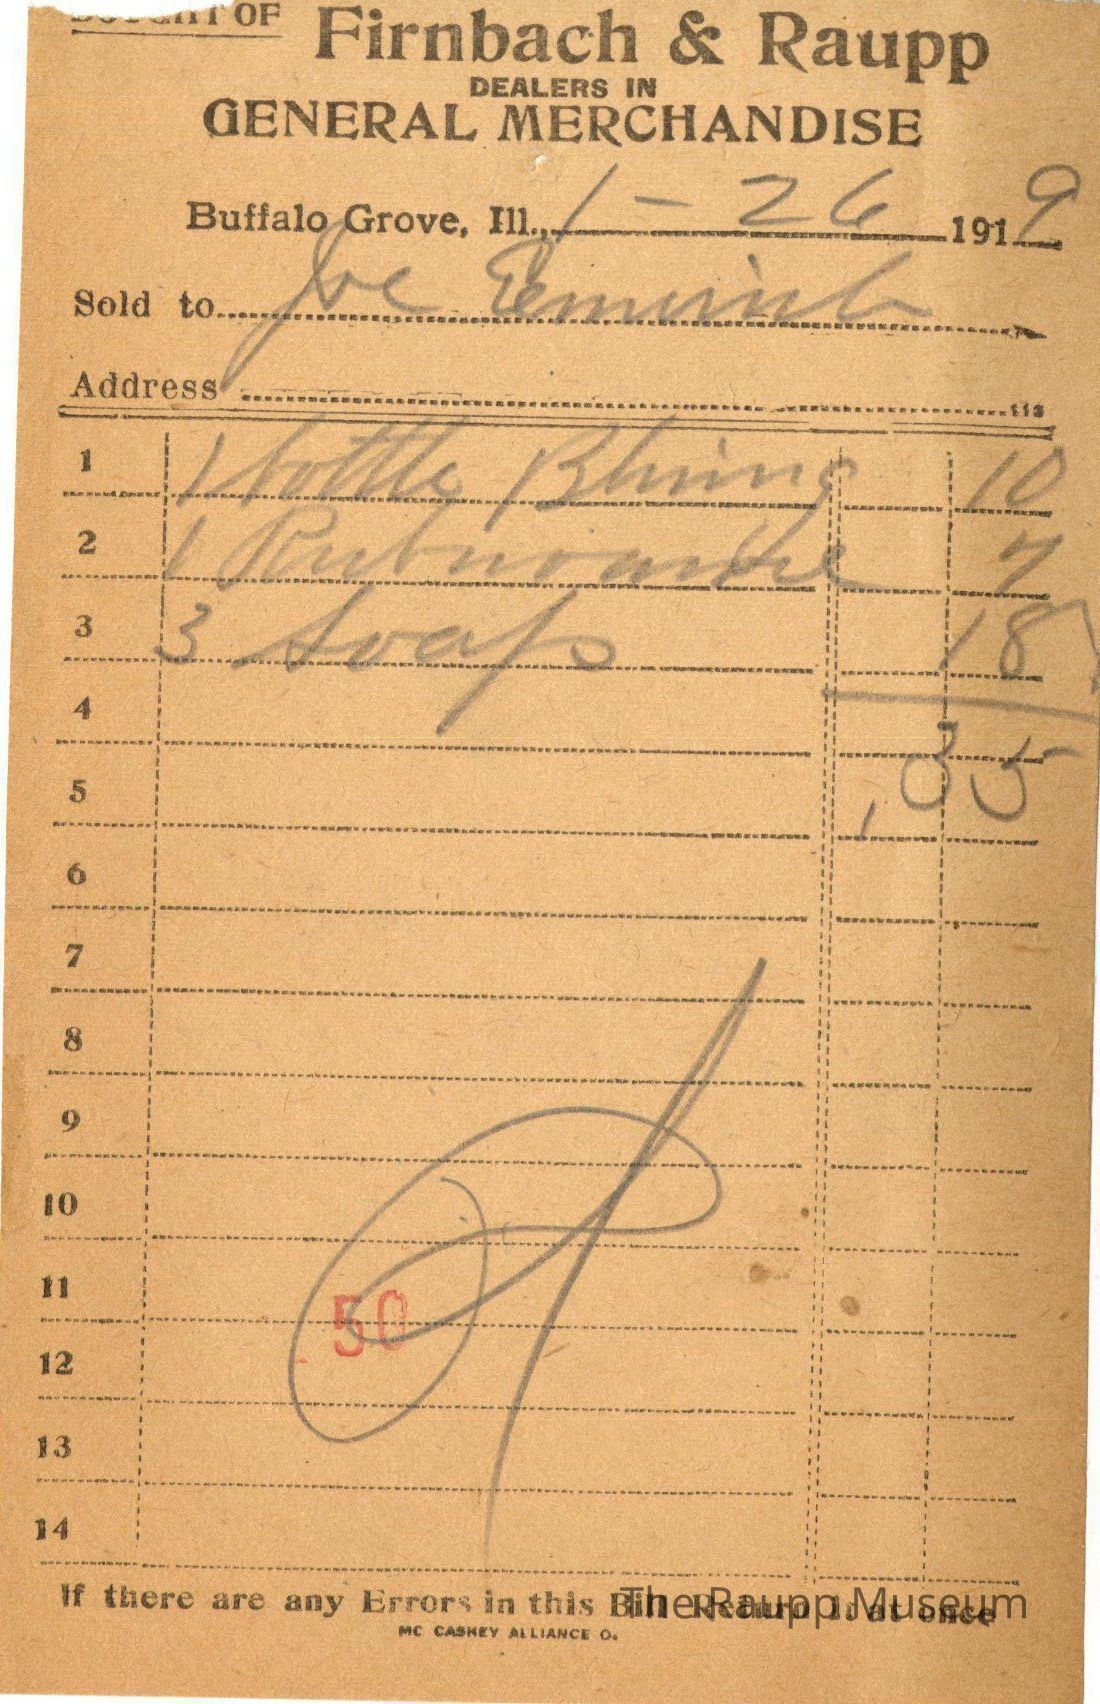 BOUGHT OF Firnbach & Raupp
DEALERS IN
GENERAL MERCHANDISE
Buffalo Grove, Ill., 1 - 26 1919
Sold to Joe
Address 113
1 1 bottle Bluing 10
2 1 7
3 3 Soaps 18
4
5 .35
6
7
8
9
10
11
50
12
13
14
If there are any Errors in this Bill Return it at once
The Raupp Museum
MC CASKEY ALLIANCE O.